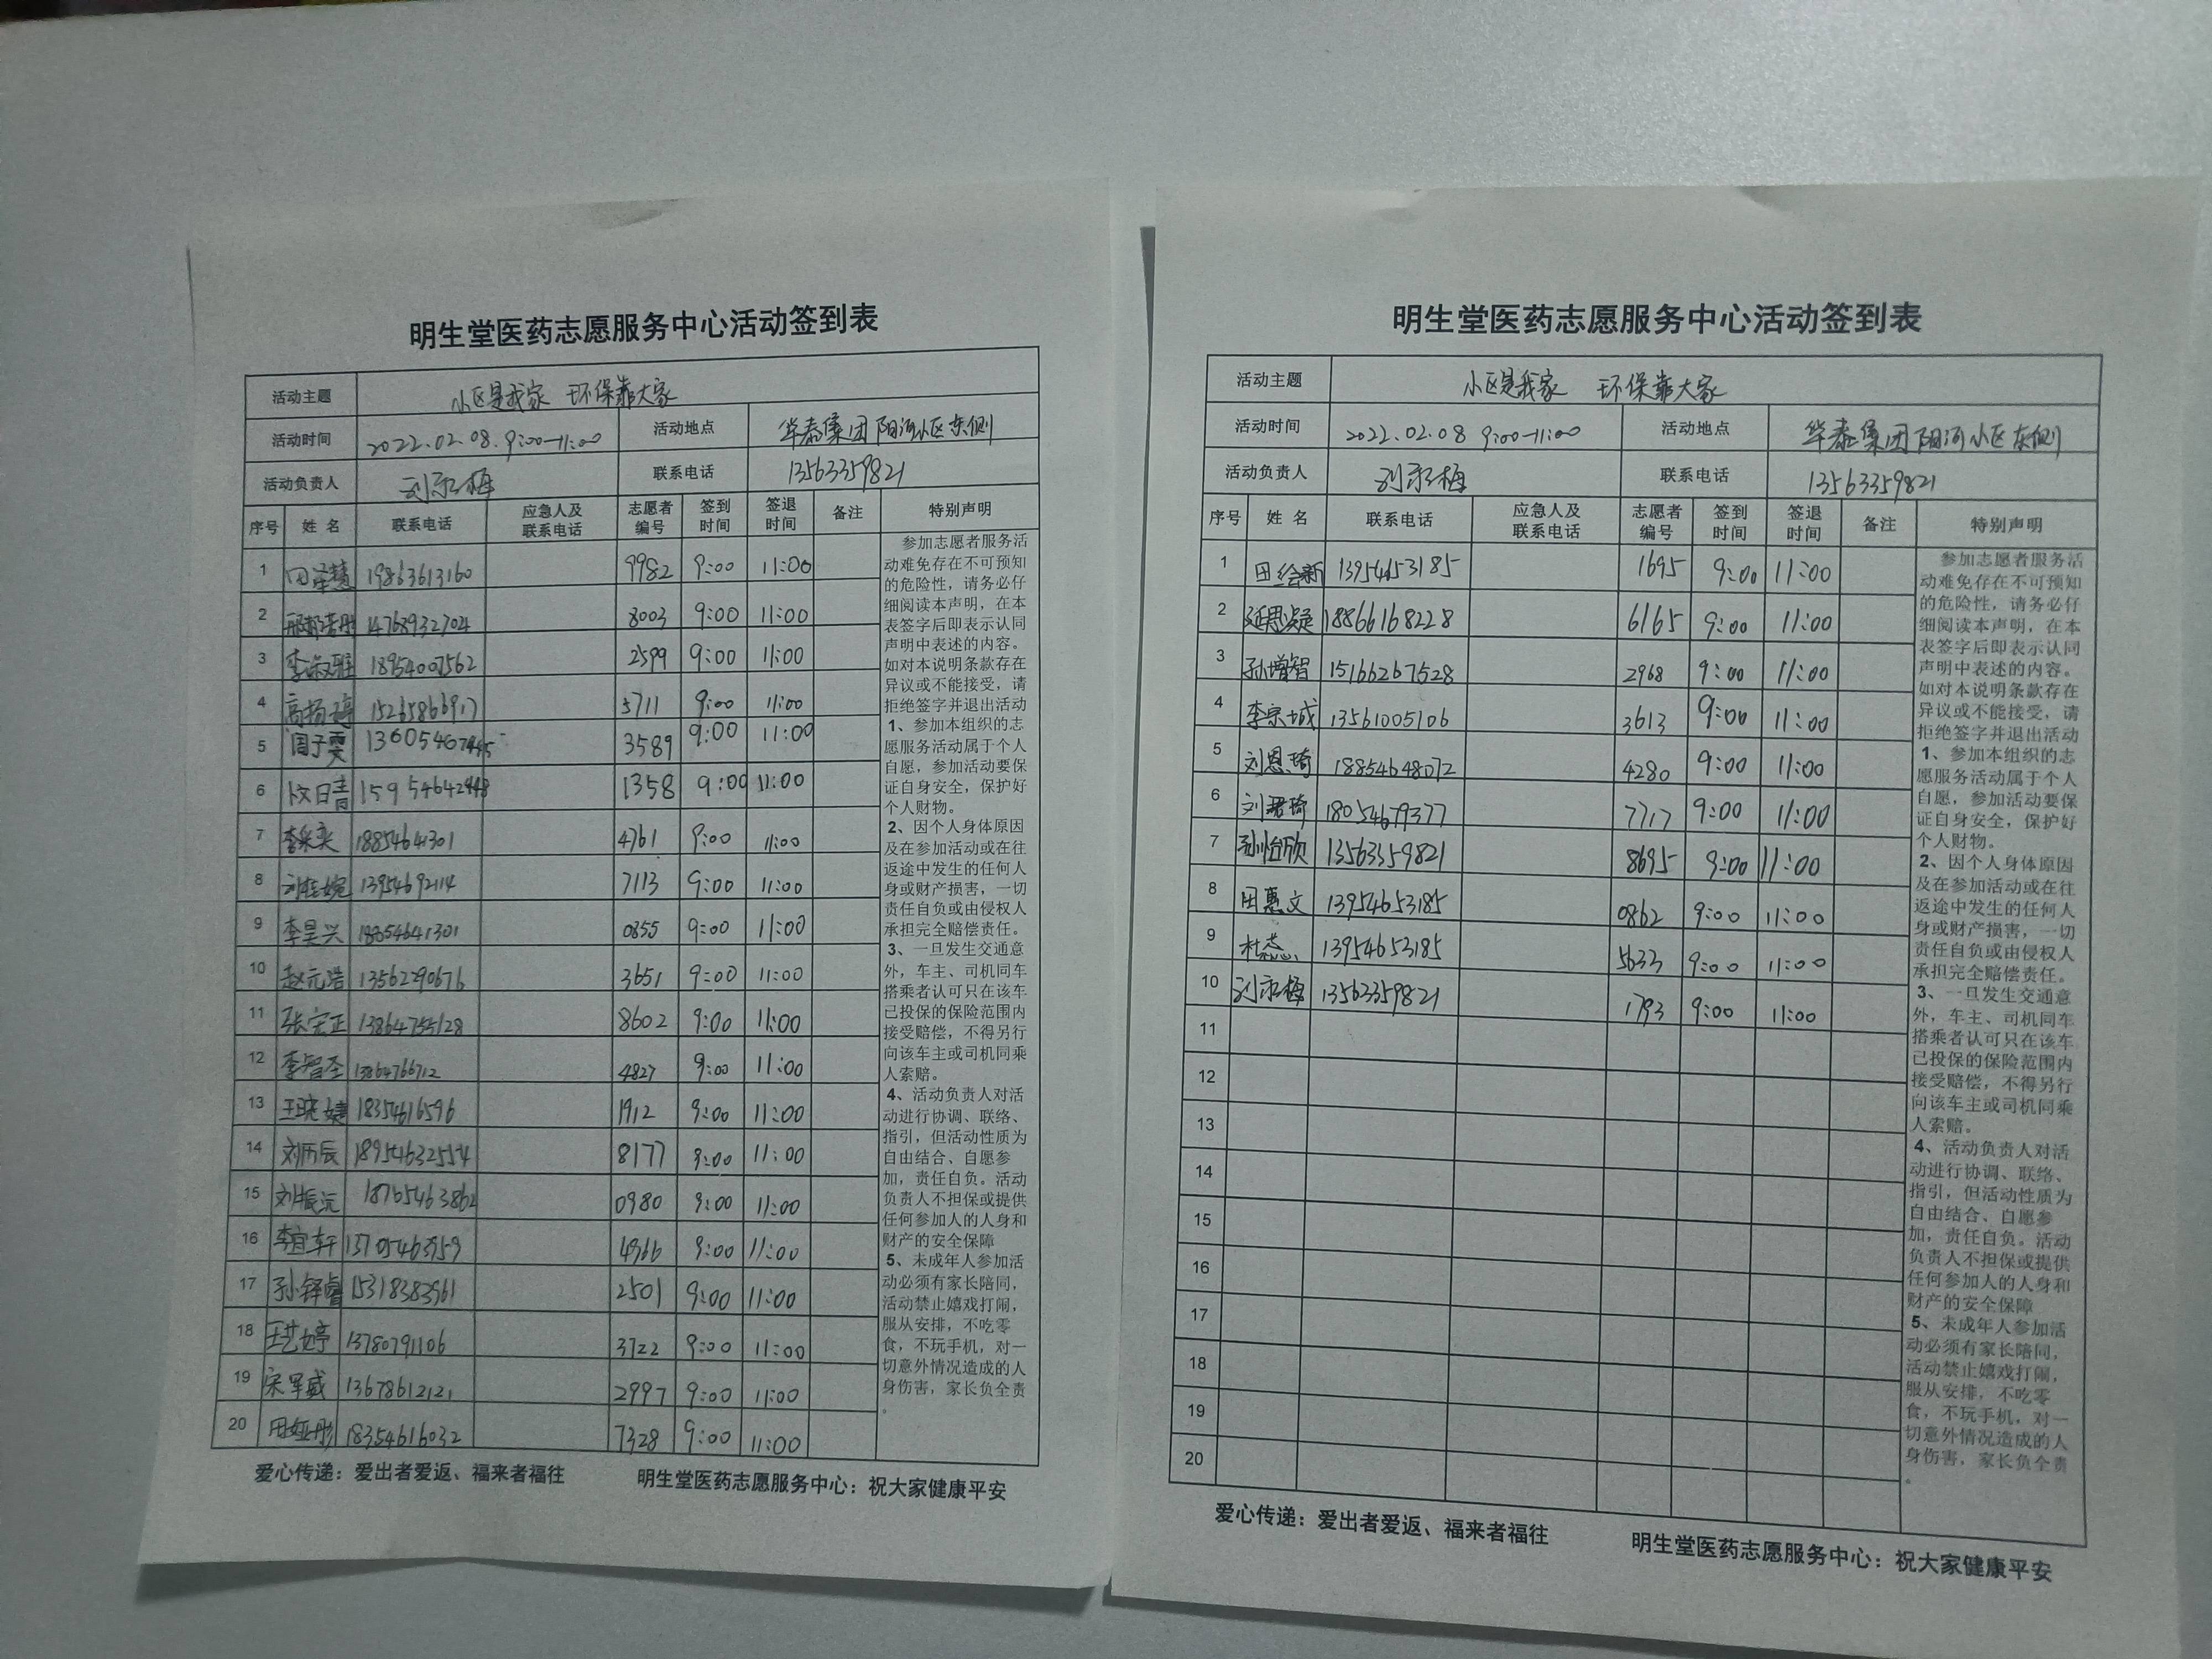 明生堂医药志愿服务中心活动签到表
活动主题 小区是我家 环保靠大家
活动时间 2022.02.08. 9:00-11:00 活动地点 华泰集团阳河小区东侧
活动负责人 刘永梅 联系电话 13563359821
序号 姓名 联系电话 应急人及联系电话 志愿者编号 签到时间 签退时间 备注 特别声明
1 田泽慧 19863613160 9982 9:00 11:00
2 14768932704 8003 9:00 11:00
3 18954007562 2599 9:00 11:00
4 15265866917 5711 9:00 11:00
5 周子雯 3589 9:00 11:00
6 1358 9:00 11:00
7 李梁奕 18854641301 4761 9:00 11:00
8 13954692114 7113 9:00 11:00
9 李昊兴 18854641301 0855 9:00 11:00
10 赵元浩 13562290676 3651 9:00 11:00
11 张宏正 8602 9:00 11:00
12 李智圣 4827 9:00 11:00
13 1912 9:00 11:00
14 刘历辰 18954632554 8177 9:00 11:00
15 刘振沅 18765463862 0980 9:00 11:00
16 李宜轩 13705463959 4966 9:00 11:00
17 孙铎睿 15318383961 2501 9:00 11:00
18 王艺婷 13780791106 3722 9:00 11:00
19 宋军威 13678612121 2997 9:00 11:00
20 田娅彤 18354616032 7328 9:00 11:00
参加志愿者服务活
动难免存在不可预知
的危险性，请务必仔
细阅读本声明，在本
表签字后即表示认同
声明中表述的内容。
如对本说明条款存在
异议或不能接受，请
拒绝签字并退出活动
1、参加本组织的志
愿服务活动属于个人
自愿，参加活动要保
证自身安全，保护好
个人财物。
2、因个人身体原因
及在参加活动或在往
返途中发生的任何人
身或财产损害，一切
责任自负或由侵权人
承担完全赔偿责任。
3、一旦发生交通意
外，车主、司机同车
搭乘者认可只在该车
已投保的保险范围内
接受赔偿，不得另行
向该车主或司机同乘
人索赔。
4、活动负责人对活
动进行协调、联络、
指引，但活动性质为
自由结合、自愿参
加，责任自负。活动
负责人不担保或提供
任何参加人的人身和
财产的安全保障
5、未成年人参加活
动必须有家长陪同，
活动禁止嬉戏打闹，
服从安排，不吃零
食，不玩手机，对一
切意外情况造成的人
身伤害，家长负全责
。
爱心传递：爱出者爱返、福来者福往 明生堂医药志愿服务中心：祝大家健康平安
明生堂医药志愿服务中心活动签到表
活动主题 小区是我家 环保靠大家
活动时间 2022.02.08 9:00-11:00 活动地点 华泰集团阳河小区东侧
活动负责人 刘永梅 联系电话 13563359821
序号 姓名 联系电话 应急人及联系电话 志愿者编号 签到时间 签退时间 备注 特别声明
1 田绘新 13954653185 1695 9:00 11:00
2 延思凝 18866168228 6165 9:00 11:00
3 孙增智 15166267528 2968 9:00 11:00
4 李宗城 13561005106 3613 9:00 11:00
5 刘恩琦 18854648072 4280 9:00 11:00
6 刘君琦 18054679377 7717 9:00 11:00
7 孙怡颀 13563359821 8695 9:00 11:00
8 田惠文 13954653185 0862 9:00 11:00
9 杜蕊 13954653185 5633 9:00 11:00
10 刘永梅 13563359821 1793 9:00 11:00
11
12
13
14
15
16
17
18
19
20
参加志愿者服务活
动难免存在不可预知
的危险性，请务必仔
细阅读本声明，在本
表签字后即表示认同
声明中表述的内容。
如对本说明条款存在
异议或不能接受，请
拒绝签字并退出活动
1、参加本组织的志
愿服务活动属于个人
自愿，参加活动要保
证自身安全，保护好
个人财物。
2、因个人身体原因
及在参加活动或在往
返途中发生的任何人
身或财产损害，一切
责任自负或由侵权人
承担完全赔偿责任。
3、一旦发生交通意
外，车主、司机同车
搭乘者认可只在该车
已投保的保险范围内
接受赔偿，不得另行
向该车主或司机同乘
人索赔。
4、活动负责人对活
动进行协调、联络、
指引，但活动性质为
自由结合、自愿参
加，责任自负。活动
负责人不担保或提供
任何参加人的人身和
财产的安全保障
5、未成年人参加活
动必须有家长陪同，
活动禁止嬉戏打闹，
服从安排，不吃零
食，不玩手机，对一
切意外情况造成的人
身伤害，家长负全责
。
爱心传递：爱出者爱返、福来者福往 明生堂医药志愿服务中心：祝大家健康平安